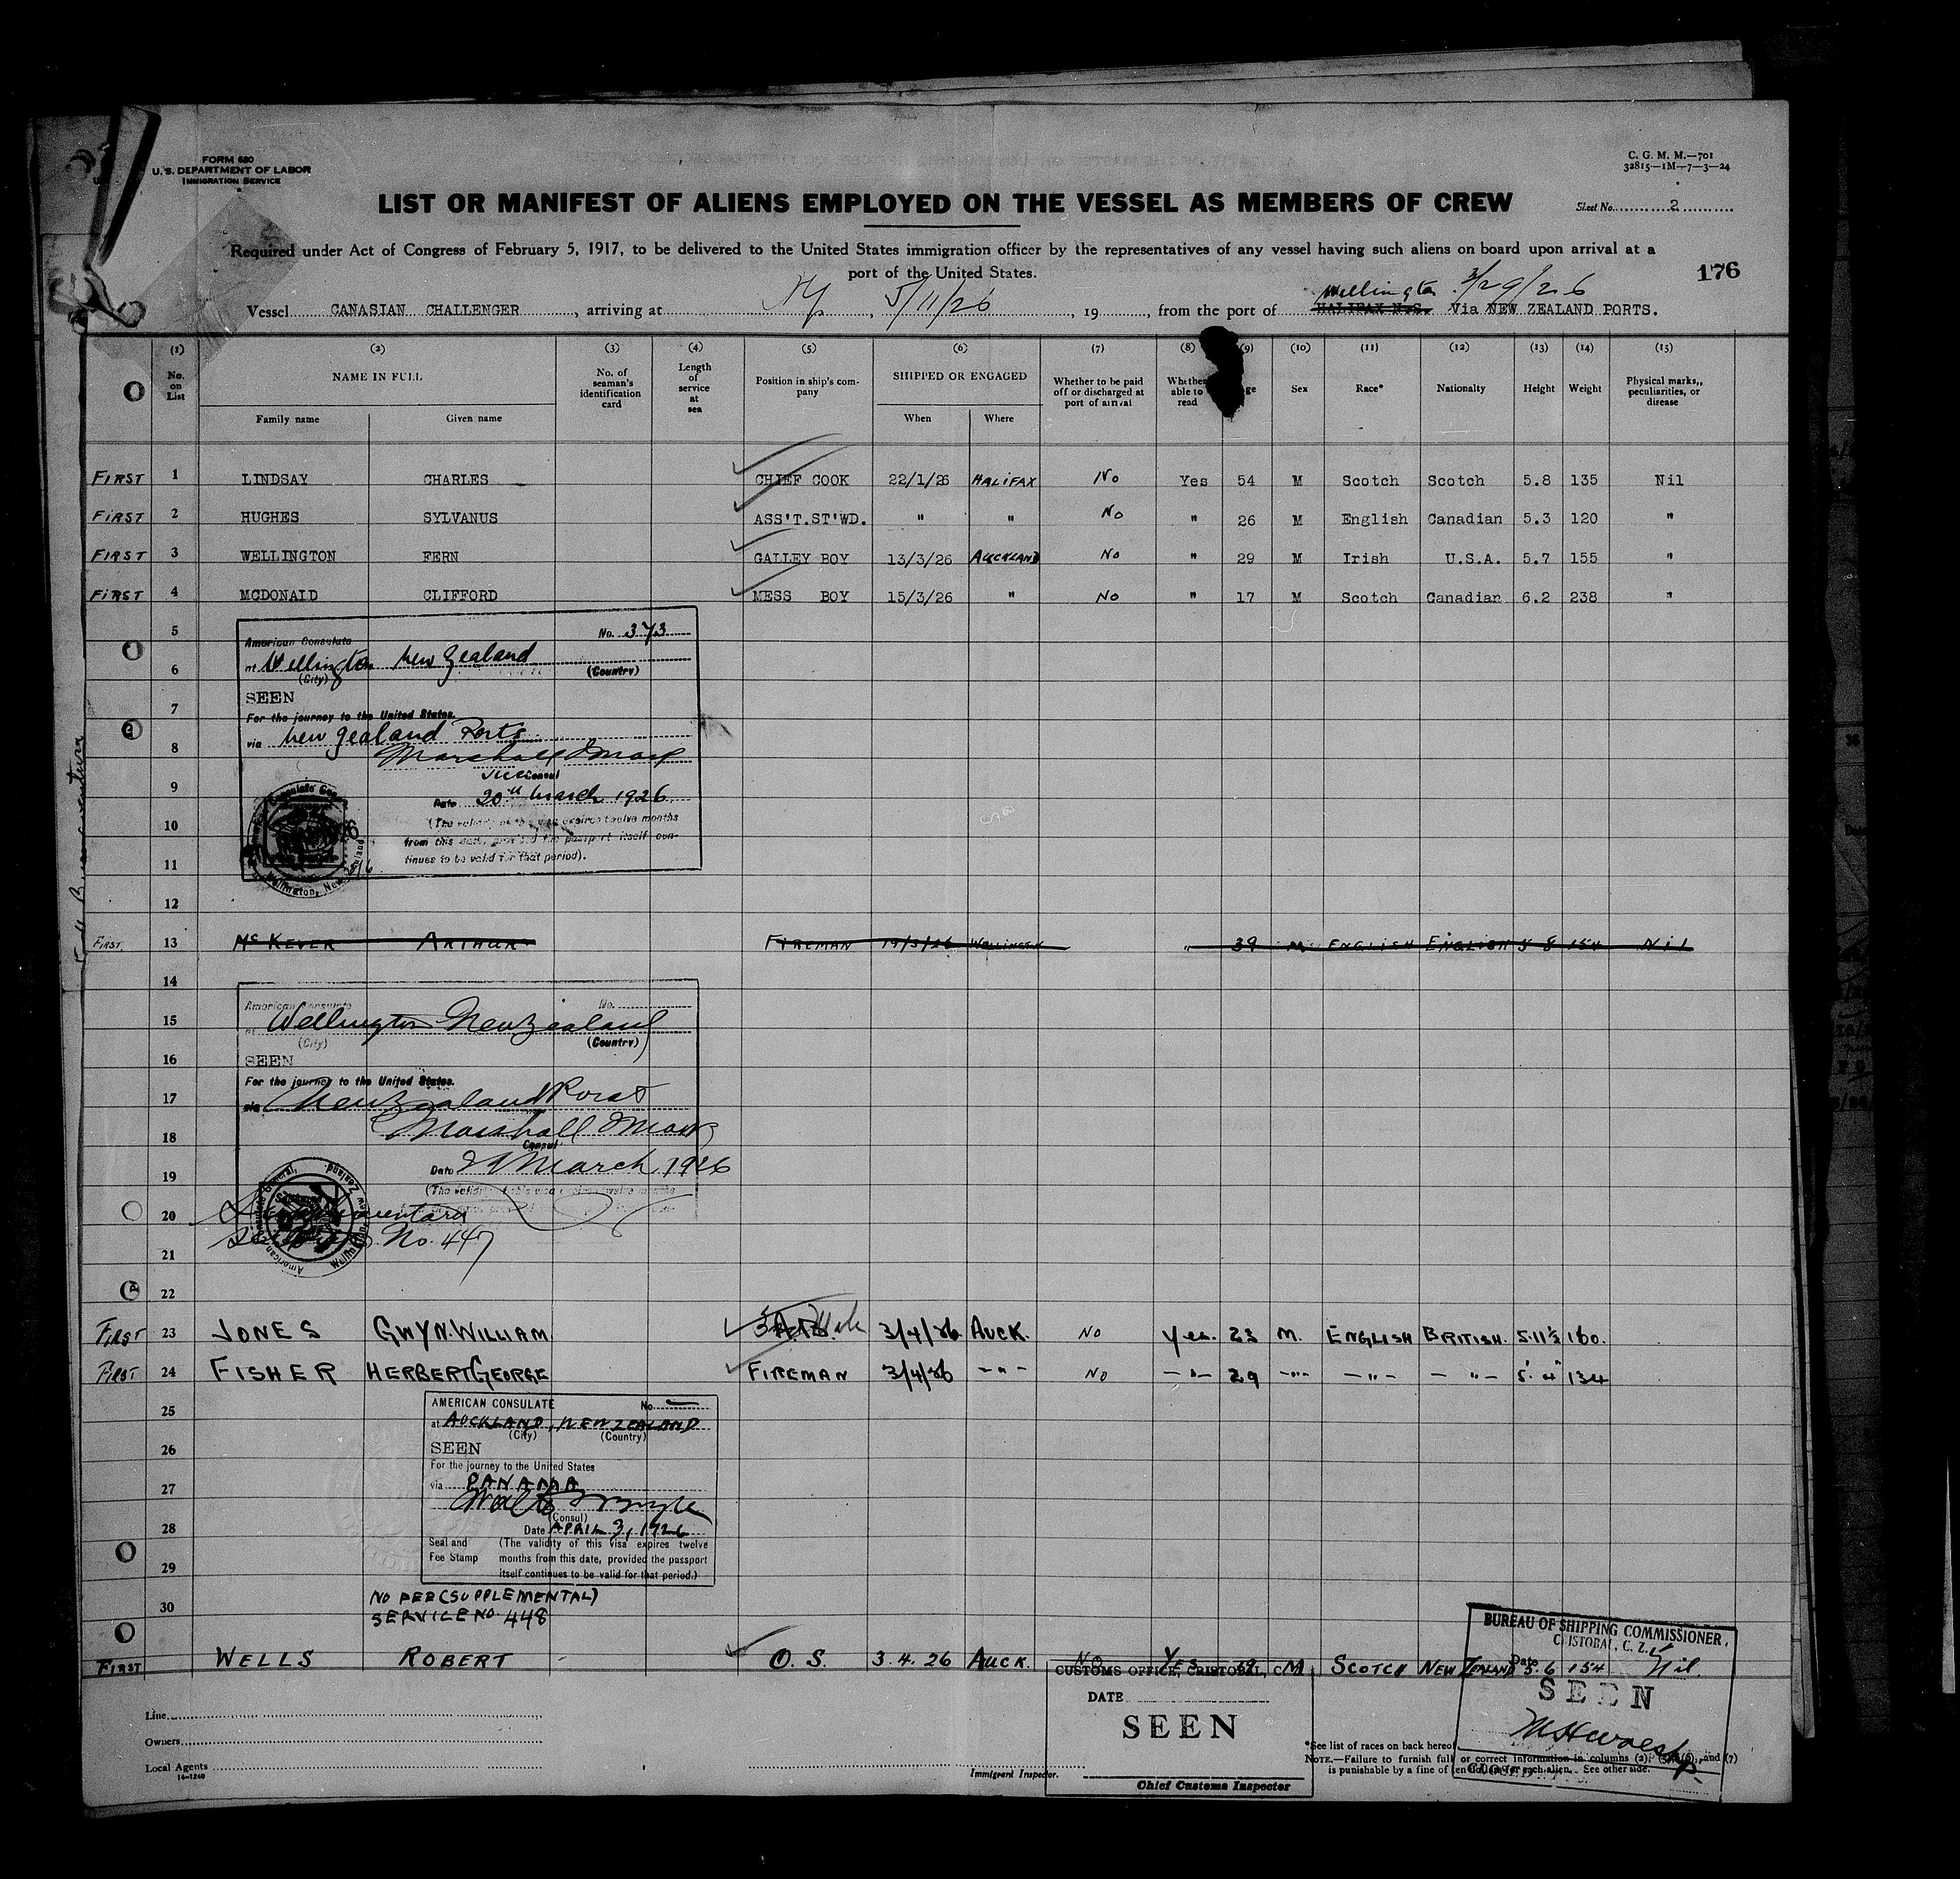 FORM 680
U.S. DEPARTMENT OF LABOR
IMMIGRATION SERVICE
C. G. M. M.—701
32815—1M—7—3—24
LIST OR MANIFEST OF ALIENS EMPLOYED ON THE VESSEL AS MEMBERS OF CREW
Sheet No. 2
Required under Act of Congress of February 5, 1917, to be delivered to the United States immigration officer by the representatives of any vessel having such aliens on board upon arrival at a
port of the United States.
176
Wellington 3/29/26
Vessel CANASIAN CHALLENGER, arriving at NY, 5/11/26, 19, from the port of HALIFAX N.S. Via NEW ZEALAND PORTS.
(1) (2) (3) (4) (5) (6) (7) (8) (9) (10) (11) (12) (13) (14) (15)
No. on List NAME IN FULL No. of seaman's identification card Length of service at sea Position in ship's company SHIPPED OR ENGAGED Whether to be paid off or discharged at port of arrival Whether able to read Sex Race* Nationalty Height Weight Physical marks, peculiarities, or disease
Family name Given name When Where
FIRST 1 LINDSAY CHARLES CHIEF COOK 22/1/26 HALIFAX No Yes 54 M Scotch Scotch 5.8 135 Nil
FIRST 2 HUGHES SYLVANUS ASS'T.ST'WD. " " No " 26 M English Canadian 5.3 120 "
FIRST 3 WELLINGTON FERN GALLEY BOY 13/3/26 AUCKLAND No " 29 M Irish U.S.A. 5.7 155 "
FIRST 4 MCDONAID CLIFFORD MESS BOY 15/3/26 " No " 17 M Scotch Canadian 6.2 238 "
5
American Consulate No. 373
6
at Wellington New Zealand
(City) (Country)
SEEN
7
For the journey to the United States.
via New Zealand Ports
8
Marshall
Vice Consul
9
Date 20th March 1926
10
(The validity of this visa expires twelve months
from this date, provided the passport itself con-
11
tinues to be valid for that period).
12
FIRST. 13 McKEVER ARTHUR FIREMAN 19/3/26 WELLINGTON " 39 M ENGLISH ENGLISH 5 8 154 Nil
14
American Consulate No.
15
Wellington New Zealand
(City) (Country)
16
SEEN
For the journey to the United States.
17
via New Zealand Ports
18
Marshall
Consul
19
Date March 1926
(The validity of this visa expires twelve months
20
No. 447
21
22
FIRST 23 JONES GWYN.WILLIAM 3/4/26 AUCK. NO Yes. 23 M. ENGLISH BRITISH. 5.11½ 160.
FIRST 24 FISHER HERBERT GEORGE FIREMAN 3/4/26 -"- NO -"- 29 -"- -"- -"- 5'.4" 134
25
AMERICAN CONSULATE No.
at AUCKLAND, NEW ZEALAND
(City) (Country)
26
SEEN
For the journey to the United States
27
via PANAMA
(Consul)
28
Date APRIL 3, 1926
Seal and Fee Stamp (The validity of this visa expires twelve
months from this date, provided the passport
29
itself continues to be valid for that period.)
NO FEE (SUPPLEMENTAL)
30
SERVICE NO. 448
FIRST WELLS ROBERT O. S. 3.4.26 AUCK. NO YES 19 M SCOTCH NEW ZEALAND 5.6 154 Nil.
BUREAU OF SHIPPING COMMISSIONER,
CRISTOBAL, C. Z.
Date
SEEN
CUSTOMS OFFICE, CRISTOBAL, C.
DATE
SEEN
Chief Customs Inspector
Line
Owners
Local Agents
14—1240
Immigrant Inspector.
*See list of races on back hereof
NOTE.—Failure to furnish full or correct information in columns (2), (5), (6), and (7)
is punishable by a fine of ten dollars for each alien. See other side.